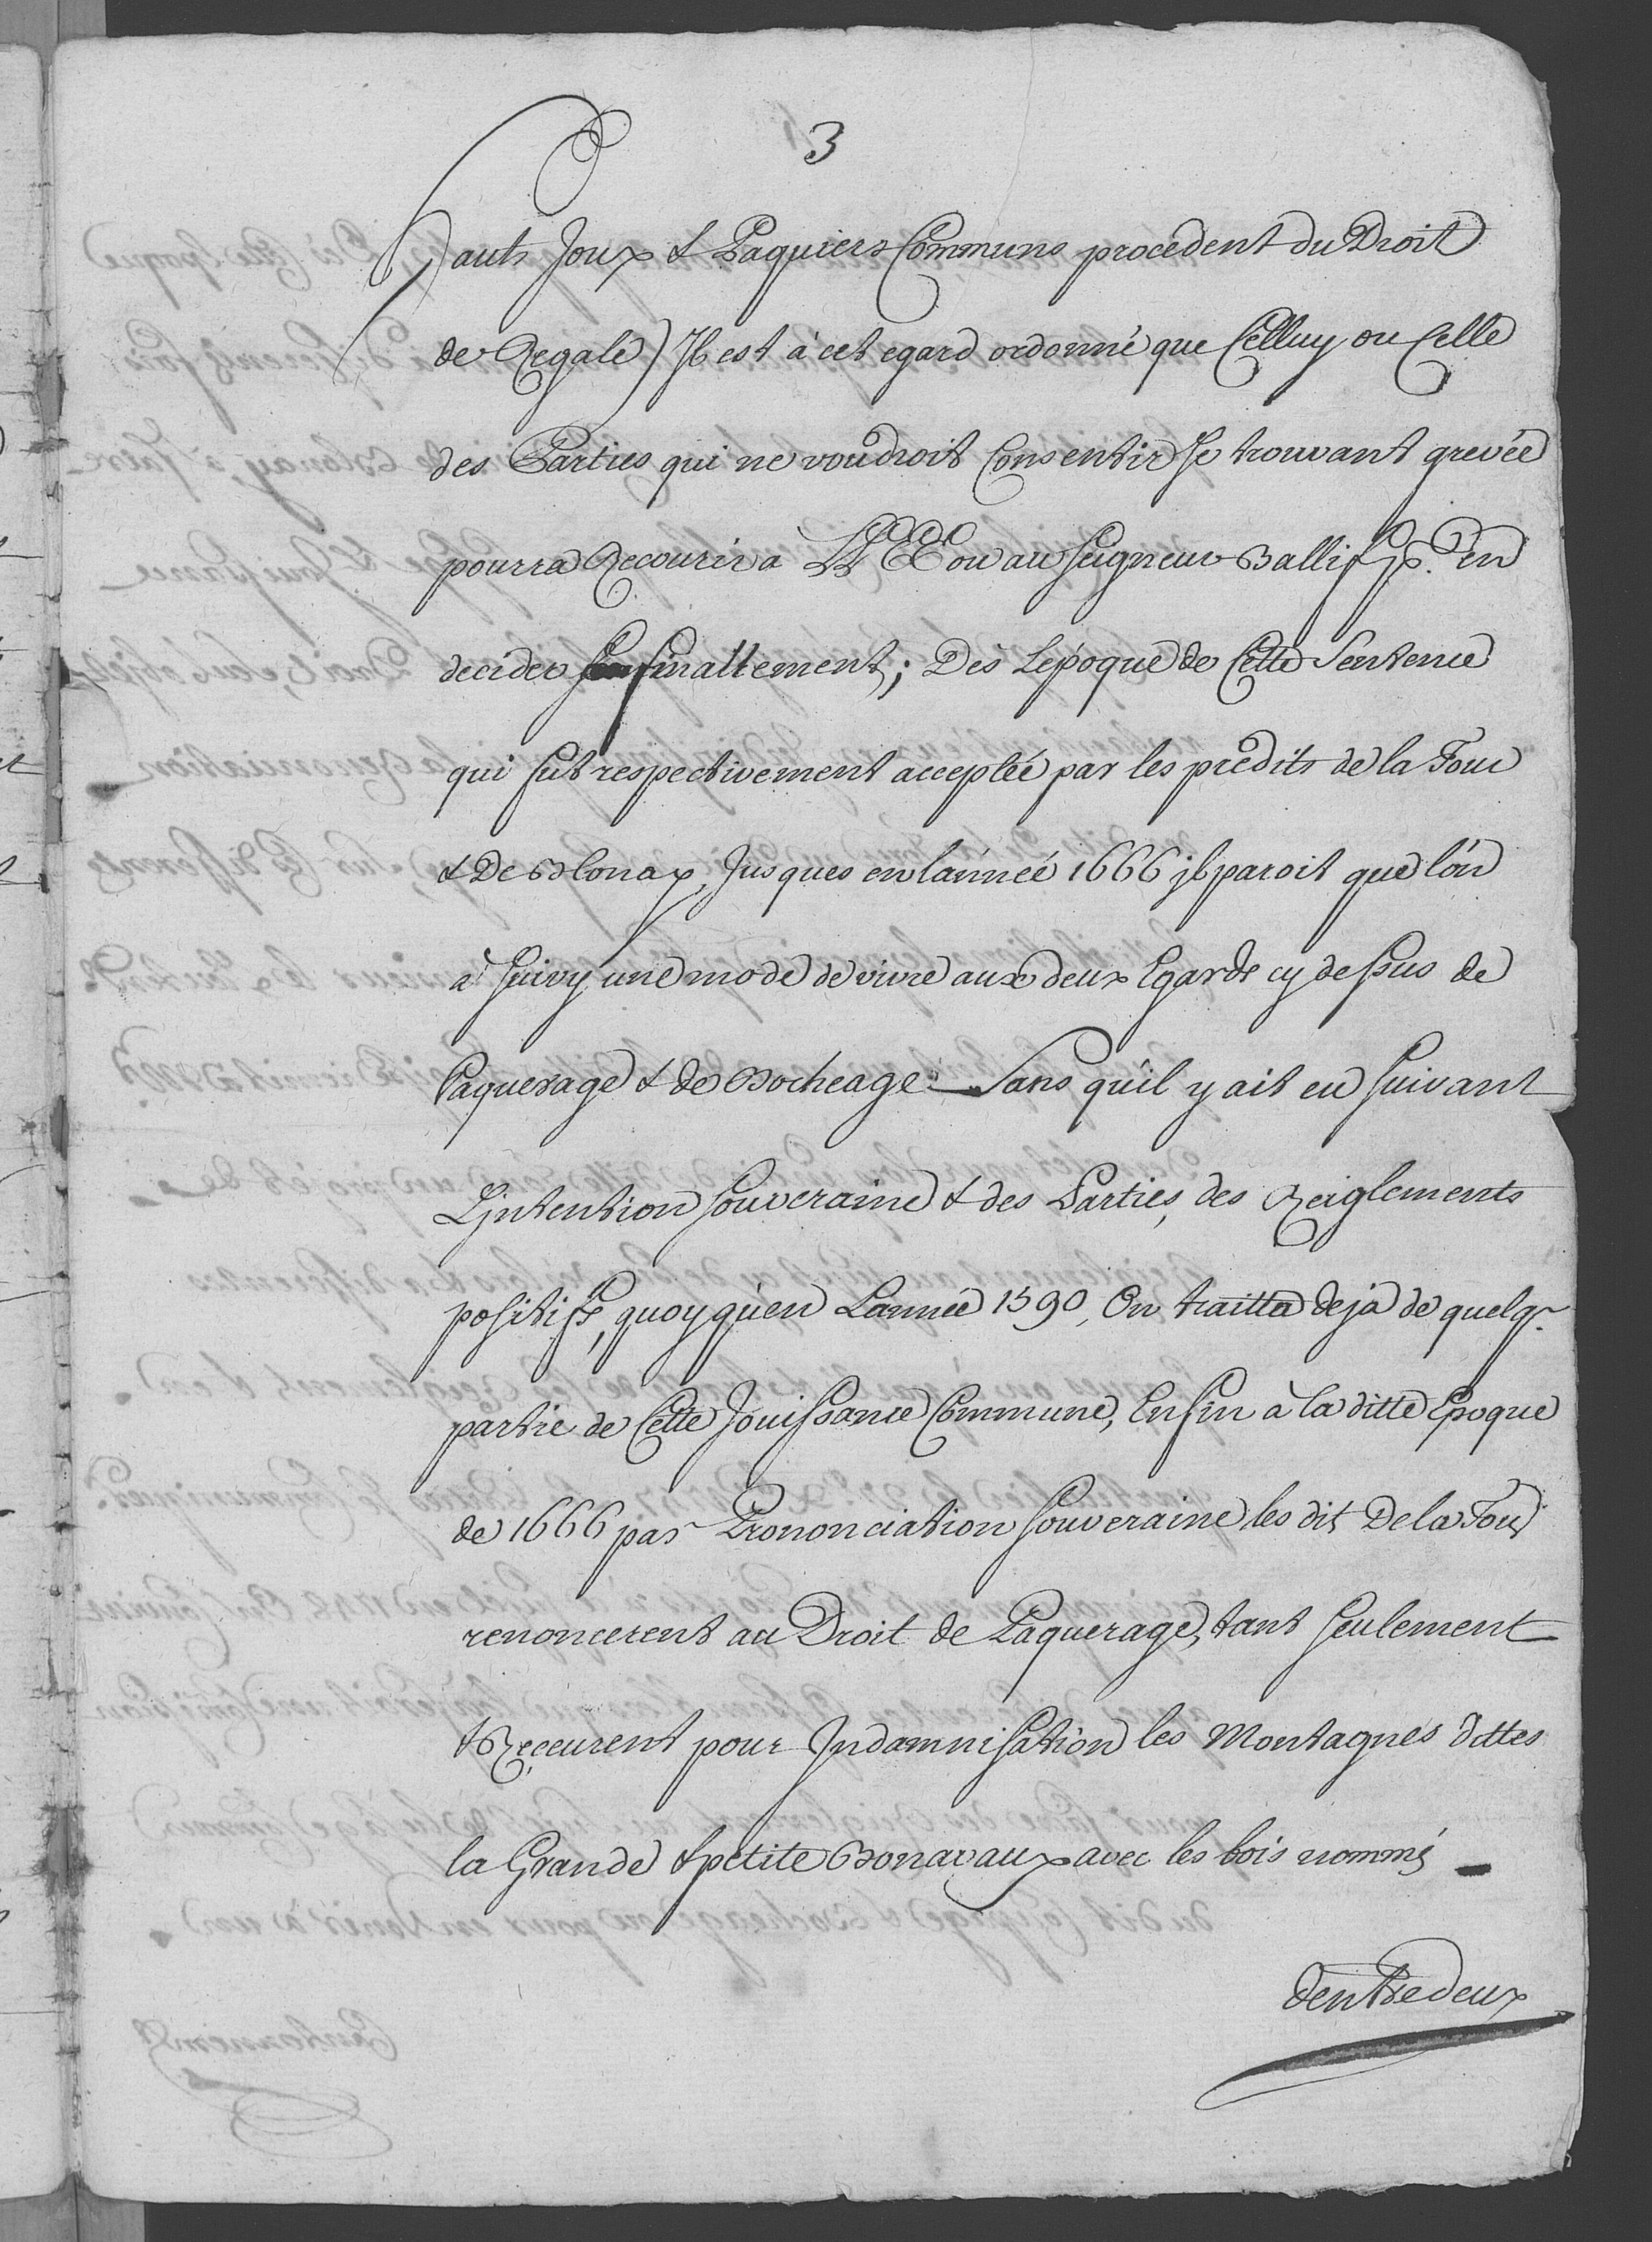 3
Hauts Joux & Paquiers Communs procedent du Droit
de Regale) Jl est à cet egard ordonné que Celluy ou Celle
des Parties qui ne voudroit Consentir se trouvant grevée
pourra Recourir a LL EE ou au seigneur Ballif pr. en
decider finallement; Dès Lepoque de Cette Sentence
qui fut respectivement acceptée par les predits de la Tour
& De Blonay, Jusques en lánnée 1666 jl paroit que l'on
à suivy une mode de vivre aux deux Egards cy dessus de
Paquerage & de Bocheage. Sans qu'il y ait eu suivant
L'jntention souveraine & des Parties, des Reiglements
positifs, quoy qu'en Lannée 1590, On traitta deja de quelq.
partie de Cette Jouissance Commune, Enfin à la ditte Epoque
de 1666 par Prononciation souveraine les dits De la Tour
renoncerent au Droit de Paquerage, tant seulement
& Reçeurent pour Jndamnisation les Montagnes dittes
la Grande & petite Bonavaux avec les bois nommés
d'entre deux